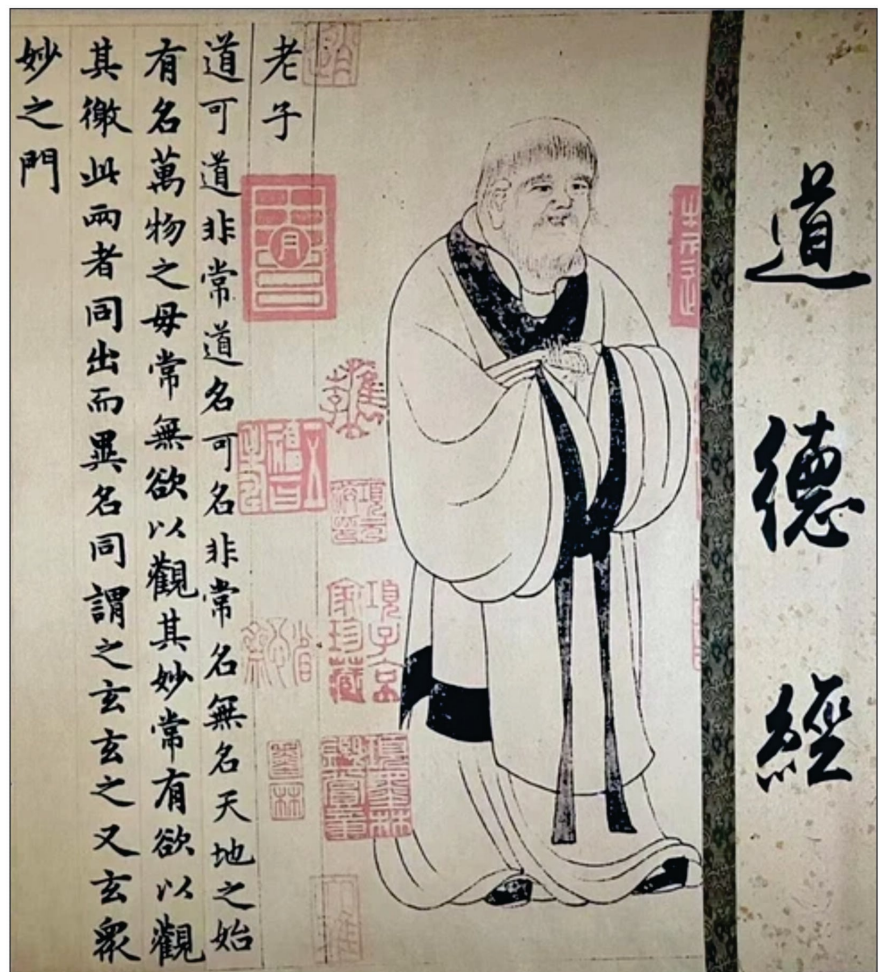 道德經
老子
道可道非常道名可名非常名無名天地之始
有名萬物之母常無欲以觀其妙常有欲以觀
其徼此兩者同出而異名同謂之玄玄之又玄眾
妙之門
項子京家珍藏